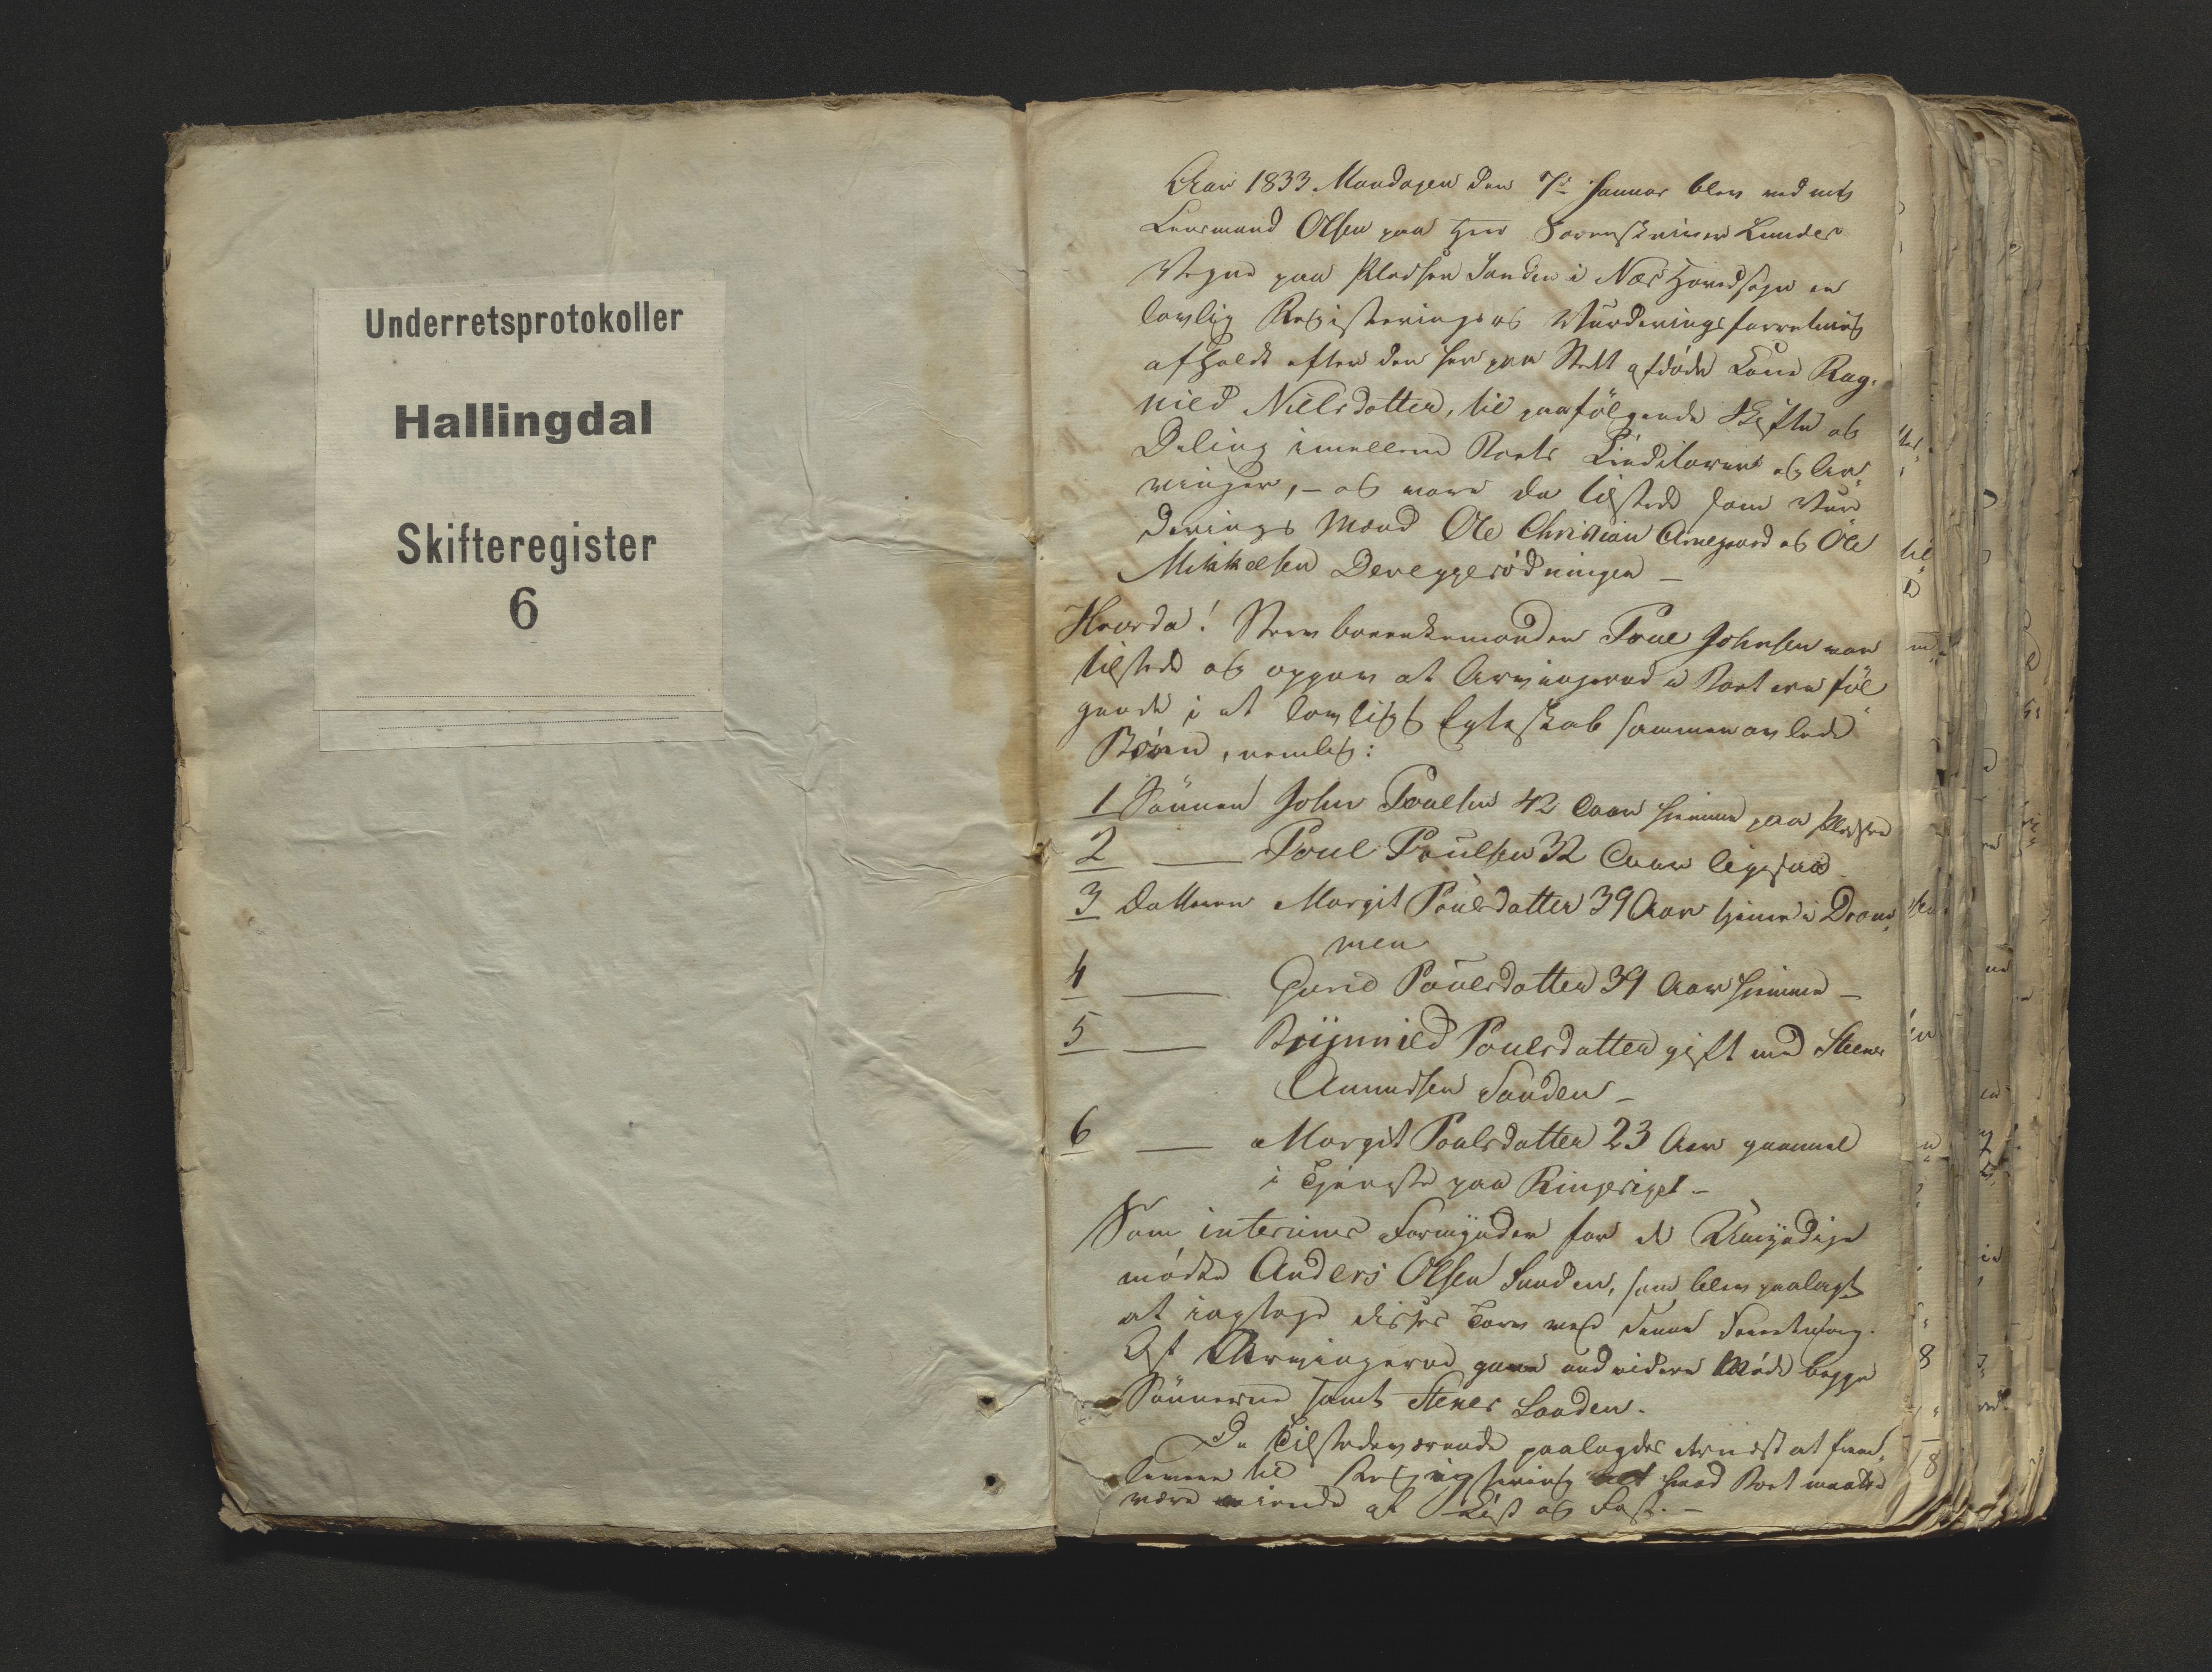 Underretsprotokoller
Hallingdal
Skifteregister
6
Aar 1833 Mandagen den 7de Januar blev ved mig
Lensmand Olsen paa Herr Sorenskriver Lunders
Vegne paa Pladsen Sanden i Næs Hovedsogn en
lovlig Registerings og Vurderingsforretning
afholdt efter den her paa Stedt afdøde Kone Rag-
nild Nielsdotter, til paafölgende Skifte og
Deling imellem Boets Creditorer og Ar-
vinger, – og vare da tilstede som Vur
derings Mænd Ole Christian Arnegaard og Ole
Mikkelsen
Hvorda! Stervboenkemanden Poul Johnsen var
tilstede og opgav at Arvingerne i Boet ere föl
gende i et lovligt Egteskab sammen avlede
Börn, nemlig:
1 Sönnen John Poulsen 42 Aar hjemme paa Pladsen
2 — Poul Poulsen 32 Aar ligesaa
3 Datteren Margit Poulsdatter 39 Aar hjemme i Dram-
men
4 — Guri Poulsdatter 34 Aar hjemme –
5 — Brynnild Poulsdatter gift med Steener
Amundsen Sanden –
6 — Margit Poulsdatter 23 Aar gammel
i Tjeneste paa Ringeriget –
Som interims Formynder for de Umyndige
mödte Anders Olsen Sanden, som blev paalagt
at iagtage disses Tarv ved denne Forretning.
Af Arvingerne gave andvidere Möde begge
Sönnerne samt Stener Sanden.
De Tilstedeværende paalagdes dernæst at frem-
komme til Registrering alt hvad Boet maatte
være eiende af Löst og Fast. –